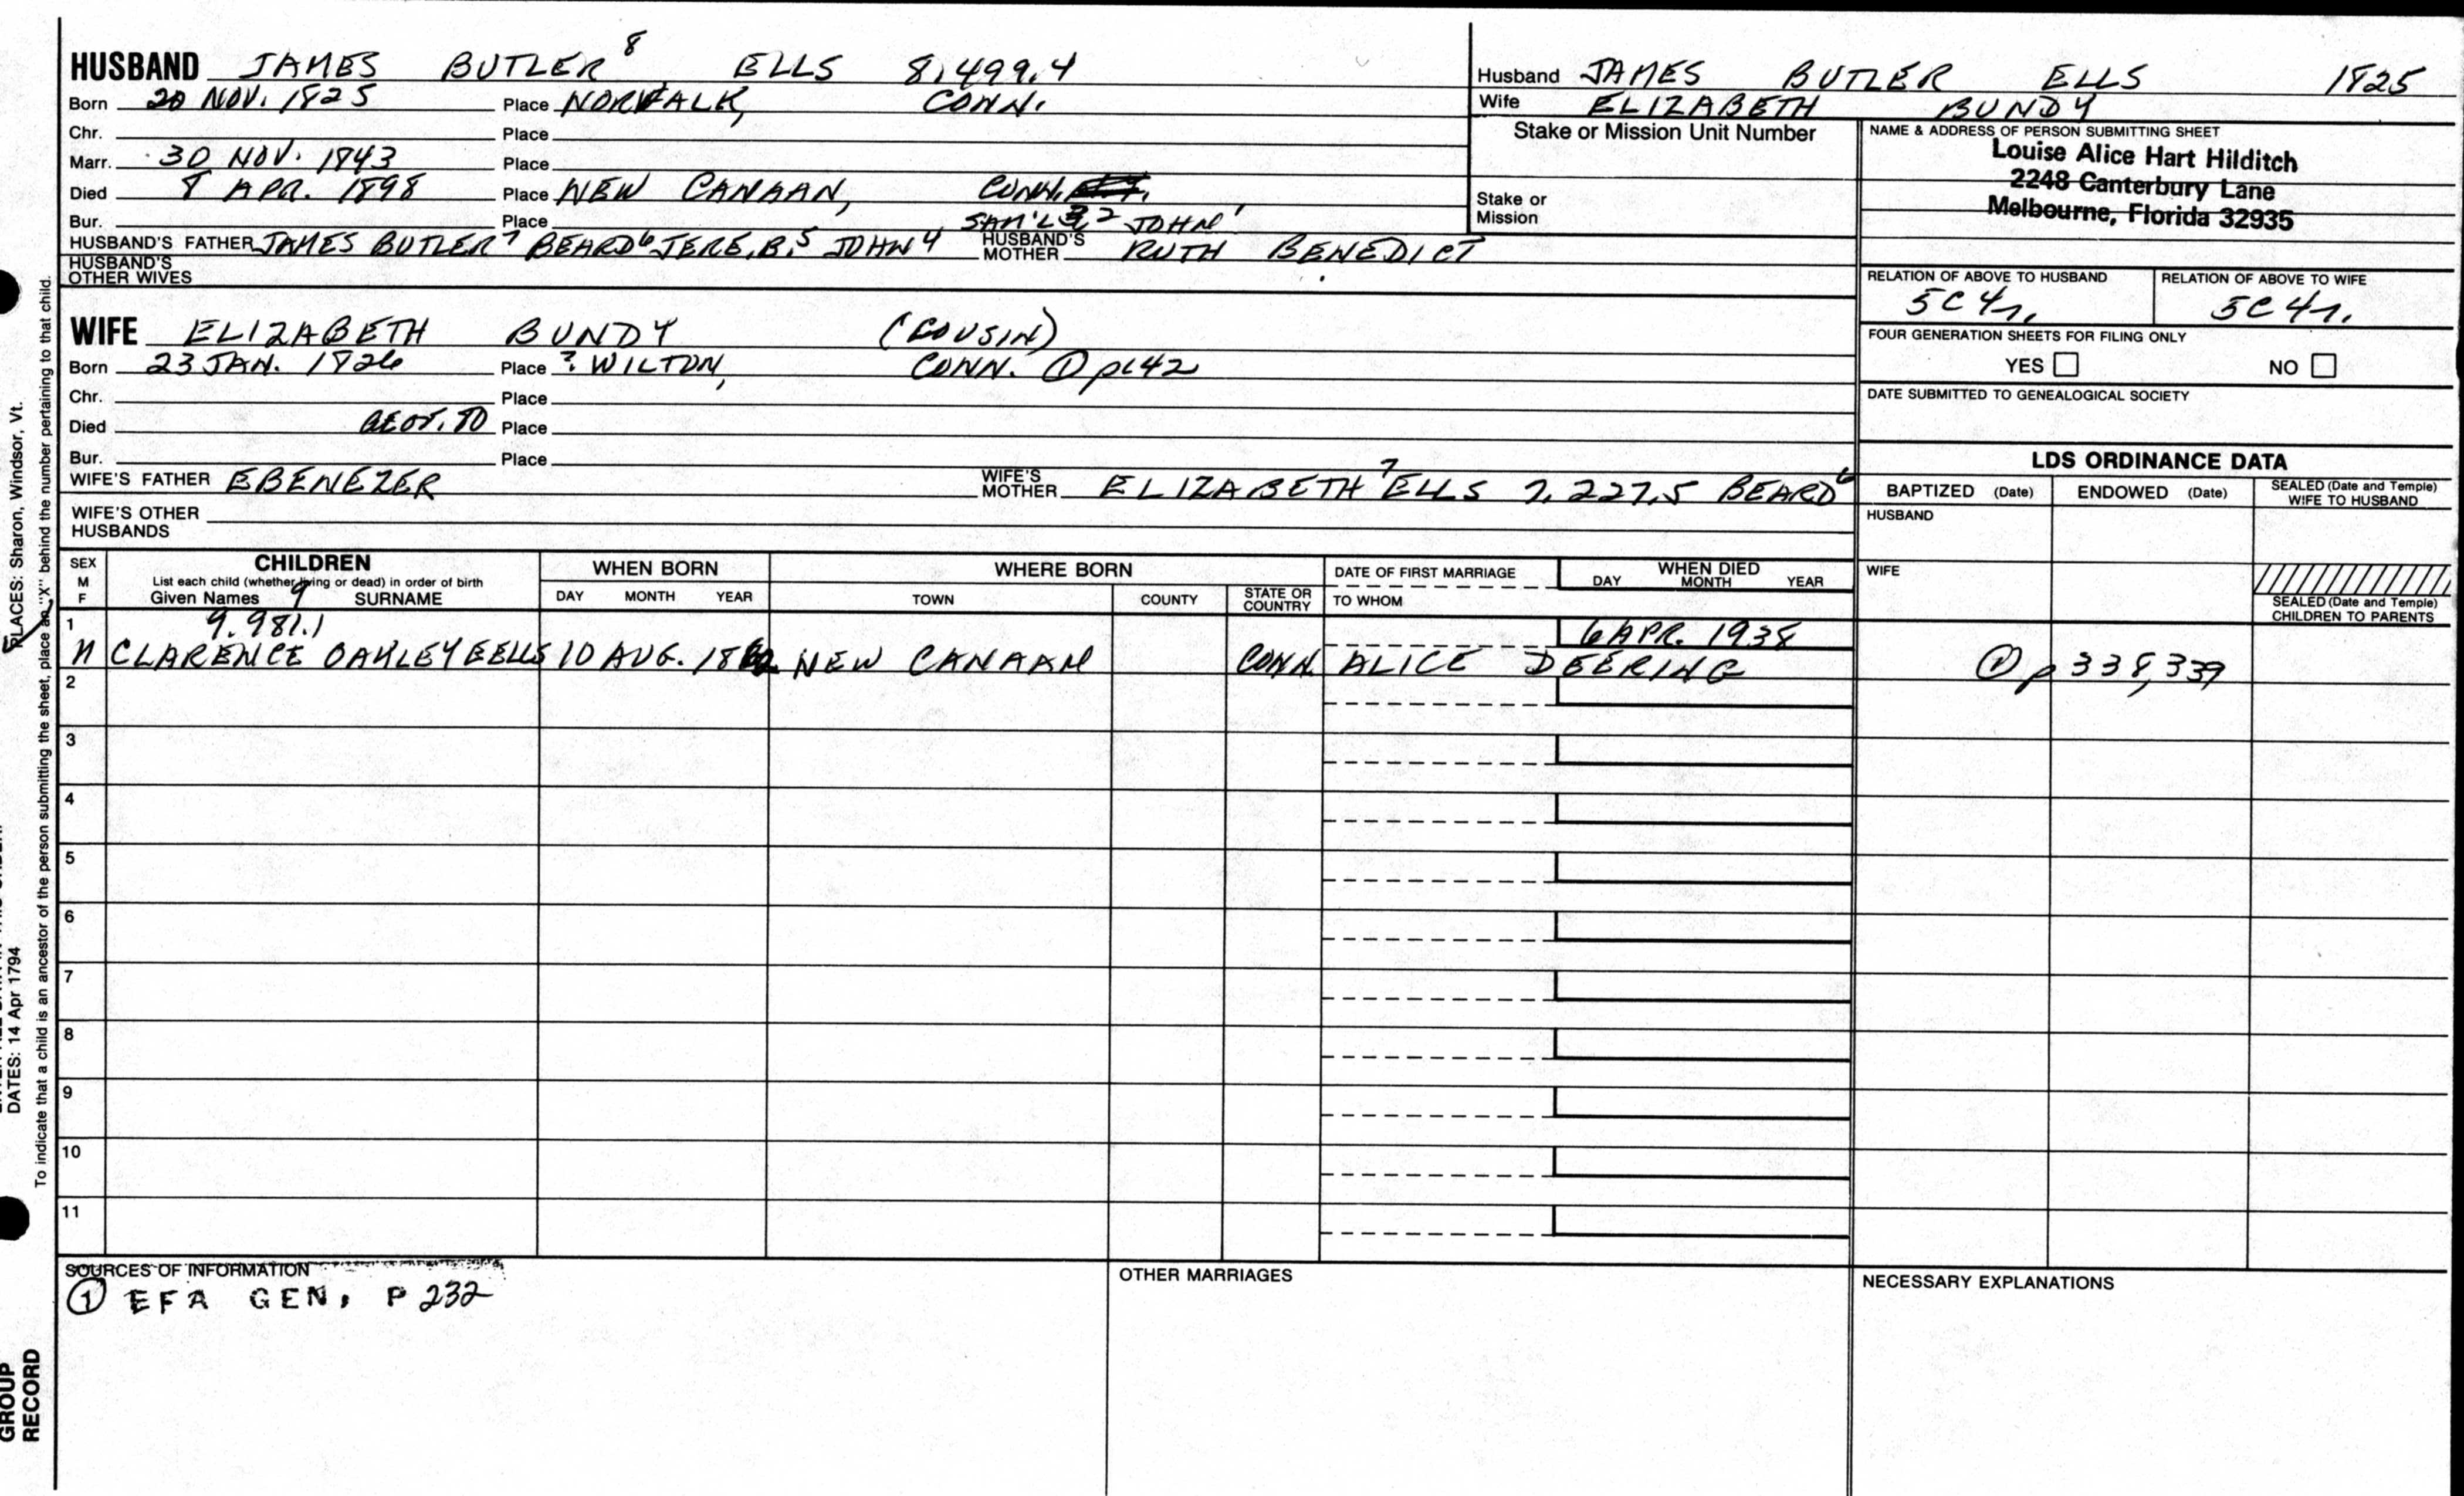 HUSBAND JAMES BUTLER⁸ ELLS 8.499.4
Born 20 NOV. 1825 Place NORWALK, CONN.
Chr. Place
Marr. 30 NOV. 1843 Place
Died 8 APR. 1898 Place NEW CANAAN, CONN.
Bur. Place SAM'L 3 2 JOHN 1
HUSBAND'S FATHER JAMES BUTLER⁷ BEARD⁶ JERE. B.⁵ JOHN⁴ HUSBAND'S MOTHER RUTH BENEDICT
HUSBAND'S OTHER WIVES
Husband JAMES BUTLER ELLS 1825
Wife ELIZABETH BUNDY
Stake or Mission Unit Number
Stake or Mission
NAME & ADDRESS OF PERSON SUBMITTING SHEET
Louise Alice Hart Hilditch
2248 Canterbury Lane
Melbourne, Florida 32935
RELATION OF ABOVE TO HUSBAND RELATION OF ABOVE TO WIFE
5C4r. 5C4r.
FOUR GENERATION SHEETS FOR FILING ONLY
YES NO
DATE SUBMITTED TO GENEALOGICAL SOCIETY
WIFE ELIZABETH BUNDY (COUSIN)
Born 23 JAN. 1826 Place ? WILTON, CONN. ① p142
Chr. Place
Died 80 Place
Bur. Place
WIFE'S FATHER EBENEZER WIFE'S MOTHER ELIZABETH⁷ ELLS 7.227.5 BEARD⁶
WIFE'S OTHER HUSBANDS
LDS ORDINANCE DATA
BAPTIZED (Date) ENDOWED (Date) SEALED (Date and Temple) WIFE TO HUSBAND
HUSBAND
WIFE
SEALED (Date and Temple) CHILDREN TO PARENTS
SEX M F
CHILDREN
List each child (whether living or dead) in order of birth
Given Names 9 SURNAME
WHEN BORN
DAY MONTH YEAR
WHERE BORN
TOWN COUNTY STATE OR COUNTRY
DATE OF FIRST MARRIAGE
TO WHOM
WHEN DIED
DAY MONTH YEAR
1 9.981.1 6 APR. 1938
M CLARENCE OAKLEY EELLS 10 AUG. 1862 NEW CANAAN CONN. ALICE DEERING ① p 338,339
2
3
4
5
6
7
8
9
10
11
SOURCES OF INFORMATION
① EFA GEN, P 232
OTHER MARRIAGES
NECESSARY EXPLANATIONS
To indicate that a child is an ancestor of the person submitting the sheet, place an "X" behind the number pertaining to that child.
PLACES: Sharon, Windsor, Vt.
DATES: 14 Apr 1794
GROUP
RECORD